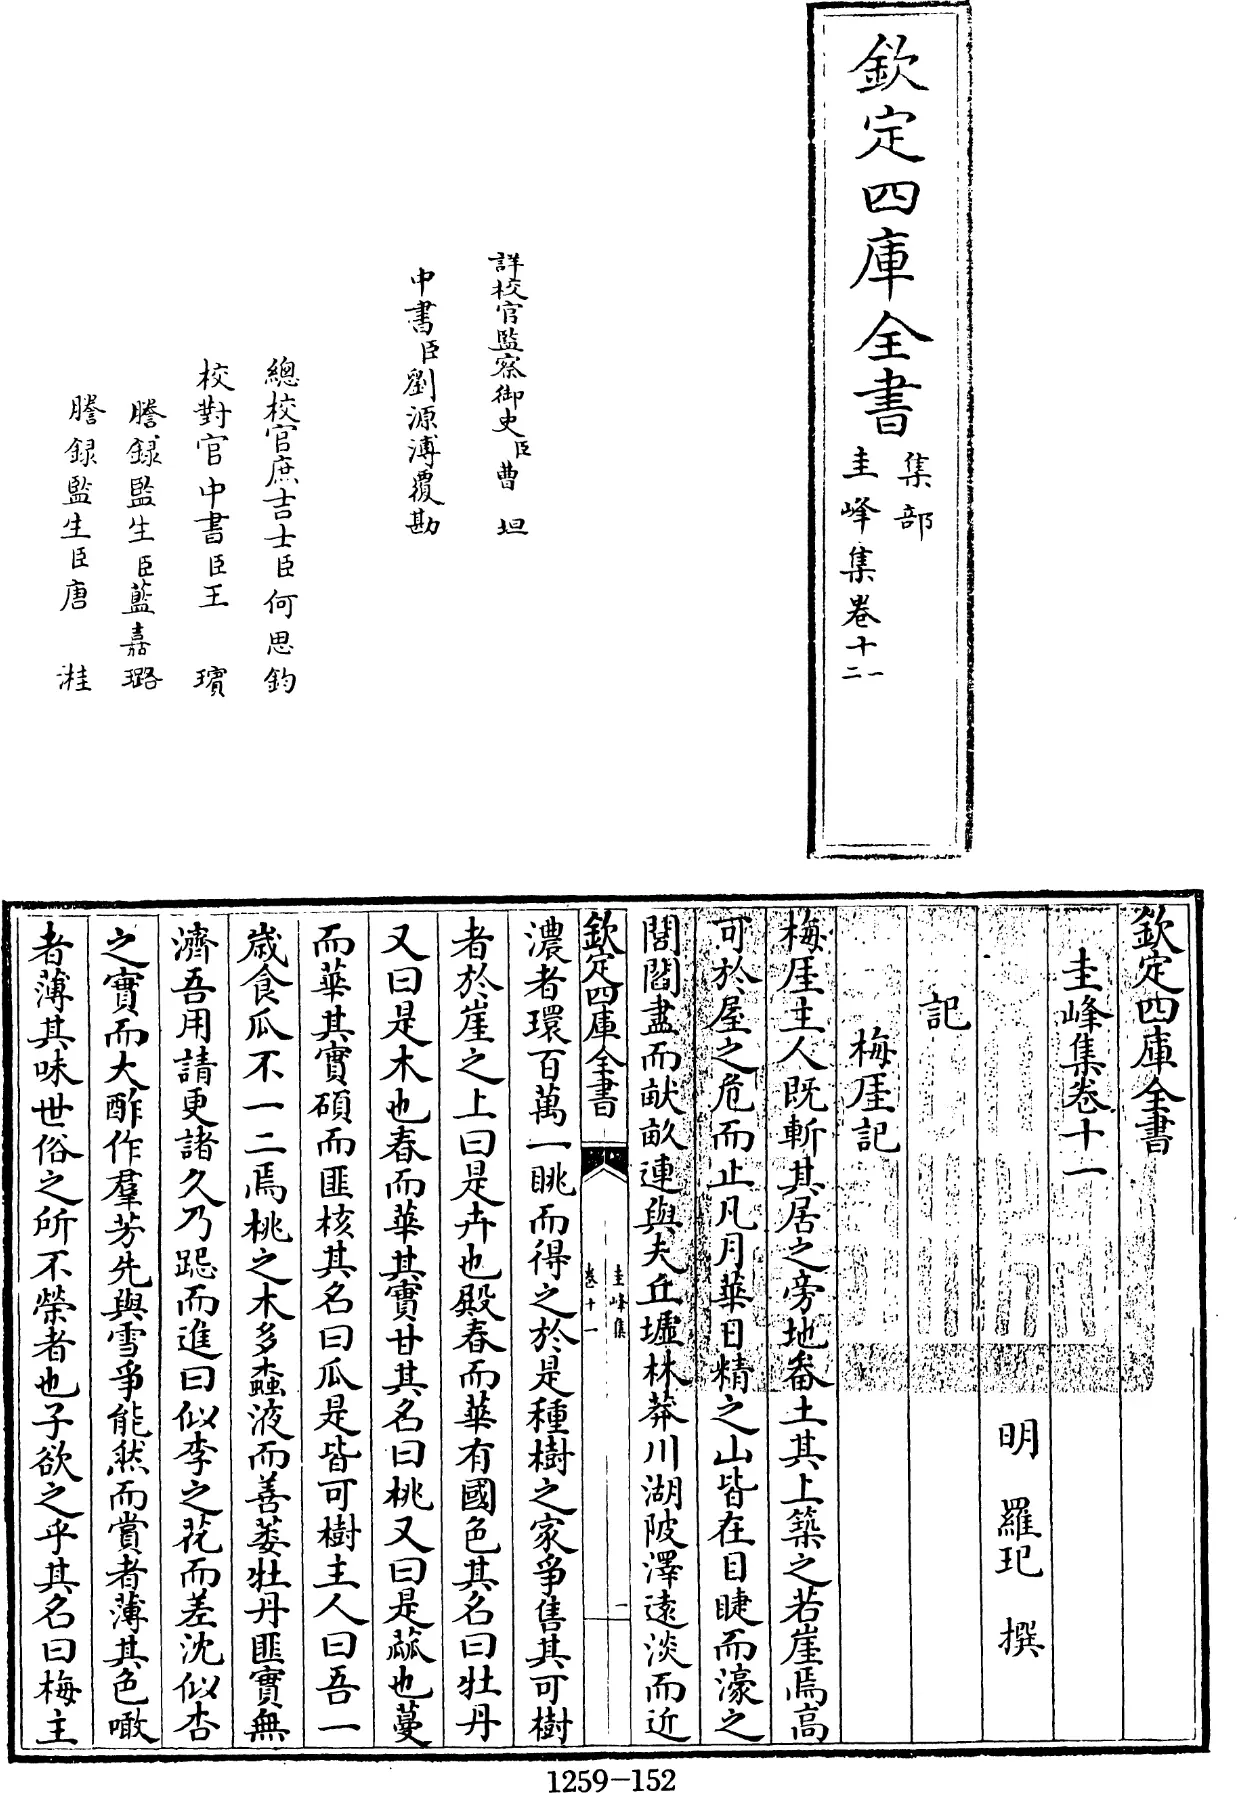 欽定四庫全書
集部
圭峰集卷十一
二
詳校官監察御史臣曹坦
中書臣劉源溥覆勘
總校官庶吉士臣何思鈞
校對官中書臣王璸
謄録監生臣藍嘉璐
謄録監生臣唐溎
欽定四庫全書
圭峰集卷十一
明 羅玘 撰
記
梅厓記
梅厓主人既斬其居之旁地畚土其上築之若崖焉高
可於屋之危而止凡月華日精之山皆在目睫而濠之
閭閻盡而畎畝連與夫丘墟林莽川湖陂澤遠淡而近
欽定四庫全書
圭峰集
卷十一
一
濃者環百萬一眺而得之於是種樹之家爭售其可樹
者於崖之上曰是卉也殿春而華有國色其名曰牡丹
又曰是木也春而華其實甘其名曰桃又曰是蓏也蔓
而華其實碩而匪核其名曰瓜是皆可樹主人曰吾一
歲食瓜不一二焉桃之木多蟲液而善萎牡丹匪實無
濟吾用請更諸久乃跽而進曰似李之花而差沈似杏
之實而大酢作羣芳先與雪爭能然而賞者薄其色噉
者薄其味世俗之所不榮者也子欲之乎其名曰梅主
1259-152